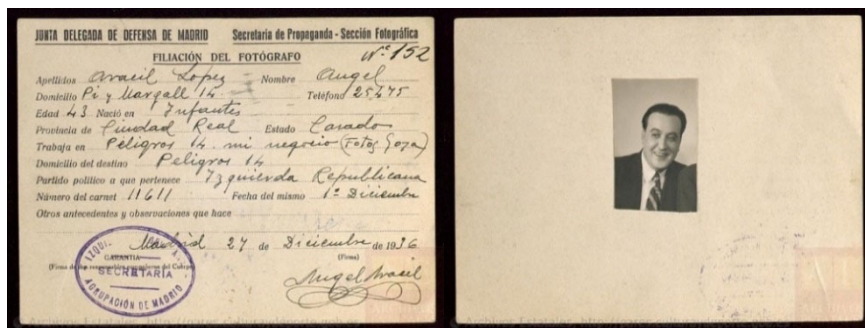 JUNTA DELEGADA DE DEFENSA DE MADRID Secretaria de Propaganda - Sección Fotográfica
FILIACIÓN DEL FOTÓGRAFO Nº 152
Apellidos Aracil Lopez Nombre Angel
Domicilio Pi y Margall 14 Teléfono 25475
Edad 43 Nació en Infantes
Provincia de Ciudad Real Estado Casado
Trabaja en Peligros 14 mi negocio (Fotos Goya)
Domicilio del destino Peligros 14
Partido político a que pertenece Izquierda Republicana
Número del carnet 11611 Fecha del mismo 1º Diciembre
Otros antecedentes y observaciones que hace
Madrid 27 de Diciembre de 1936
GARANTIA (Firma)
(Firma de los responsables del Cuerpo)
SECRETARIA
AGRUPACIÓN DE MADRID
Angel Aracil